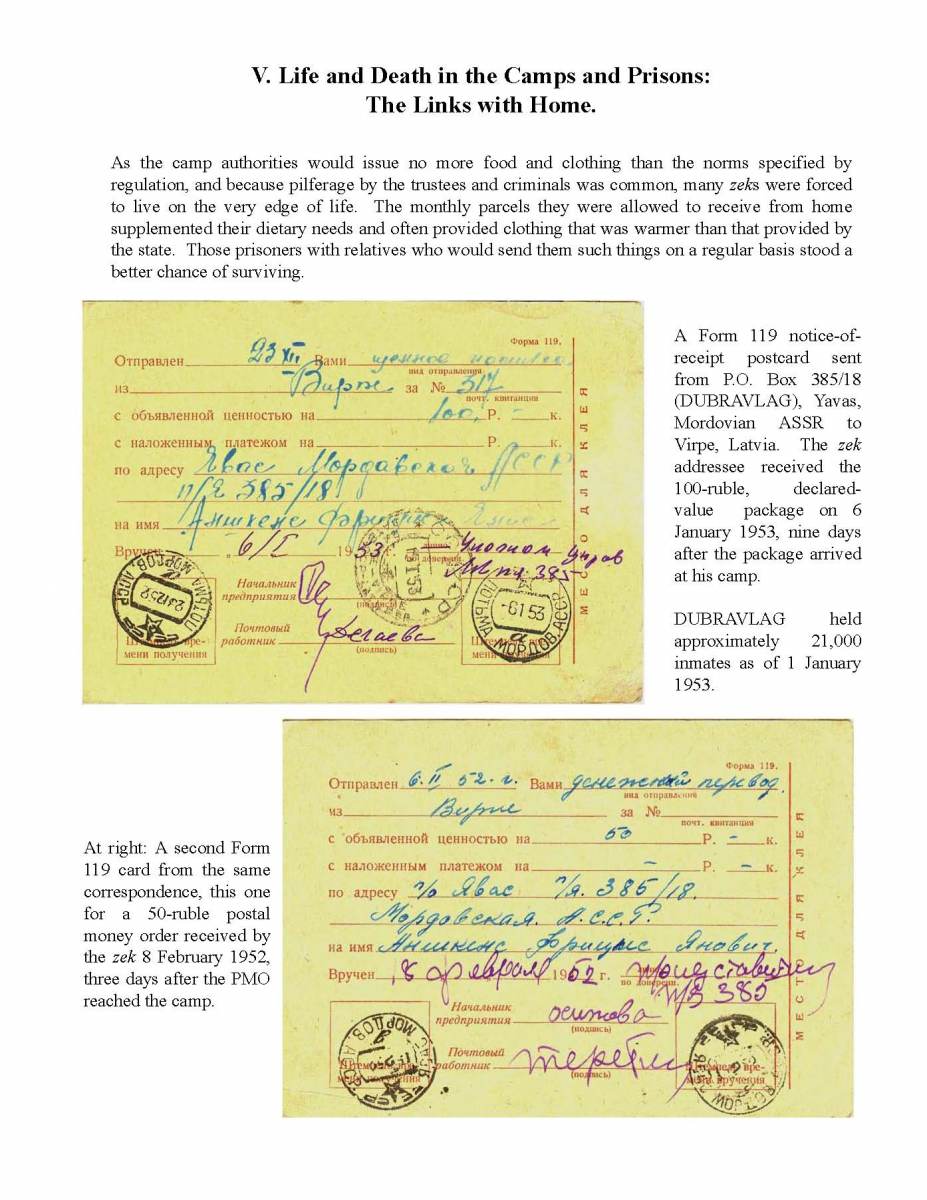 V. Life and Death in the Camps and Prisons:
The Links with Home.
As the camp authorities would issue no more food and clothing than the norms specified by
regulation, and because pilferage by the trustees and criminals was common, many zeks were forced
to live on the very edge of life. The monthly parcels they were allowed to receive from home
supplemented their dietary needs and often provided clothing that was warmer than that provided by
the state. Those prisoners with relatives who would send them such things on a regular basis stood a
better chance of surviving.
Форма 119.
Отправлен 23 XII Вами ценная посылка
вид отправления
из Вирпе за № 317
почт. квитанция
с объявленной ценностью на 100, Р. - к.
с наложенным платежом на Р. к.
по адресу Явас Мордавской АССР
п/я 385/18
на имя Аншкенс Фрицис
Вручен „6/I 1953 г.
по доверен.
п/я 385
Начальник
предприятия
(подпись)
Почтовый
работник
(подпись)
мени получения
МЕСТО ДЛЯ КЛЕЯ
ПОТЬМА МОРДОВ. АССР
-6 1 53
A Form 119 notice-of-
receipt postcard sent
from P.O. Box 385/18
(DUBRAVLAG), Yavas,
Mordovian ASSR to
Virpe, Latvia. The zek
addressee received the
100-ruble, declared-
value package on 6
January 1953, nine days
after the package arrived
at his camp.
DUBRAVLAG held
approximately 21,000
inmates as of 1 January
1953.
Форма 119.
Отправлен 6. II 52. г. Вами денежный перевод.
вид отправления
из Вирпе за №
почт. квитанция
с объявленной ценностью на 50 Р. - к.
с наложенным платежом на - Р. - к.
по адресу п/о Явас п/я. 385/18.
Мордовская. А.С.С.Р.
на имя Аншкенс Фрицис Янович.
Вручен „8 февраля 1952 г.
по доверен. п/я 385
Начальник
предприятия Осипова
(подпись)
Почтовый
работник
(подпись)
мени вручения
МЕСТО ДЛЯ КЛЕЯ
At right: A second Form
119 card from the same
correspondence, this one
for a 50-ruble postal
money order received by
the zek 8 February 1952,
three days after the PMO
reached the camp.